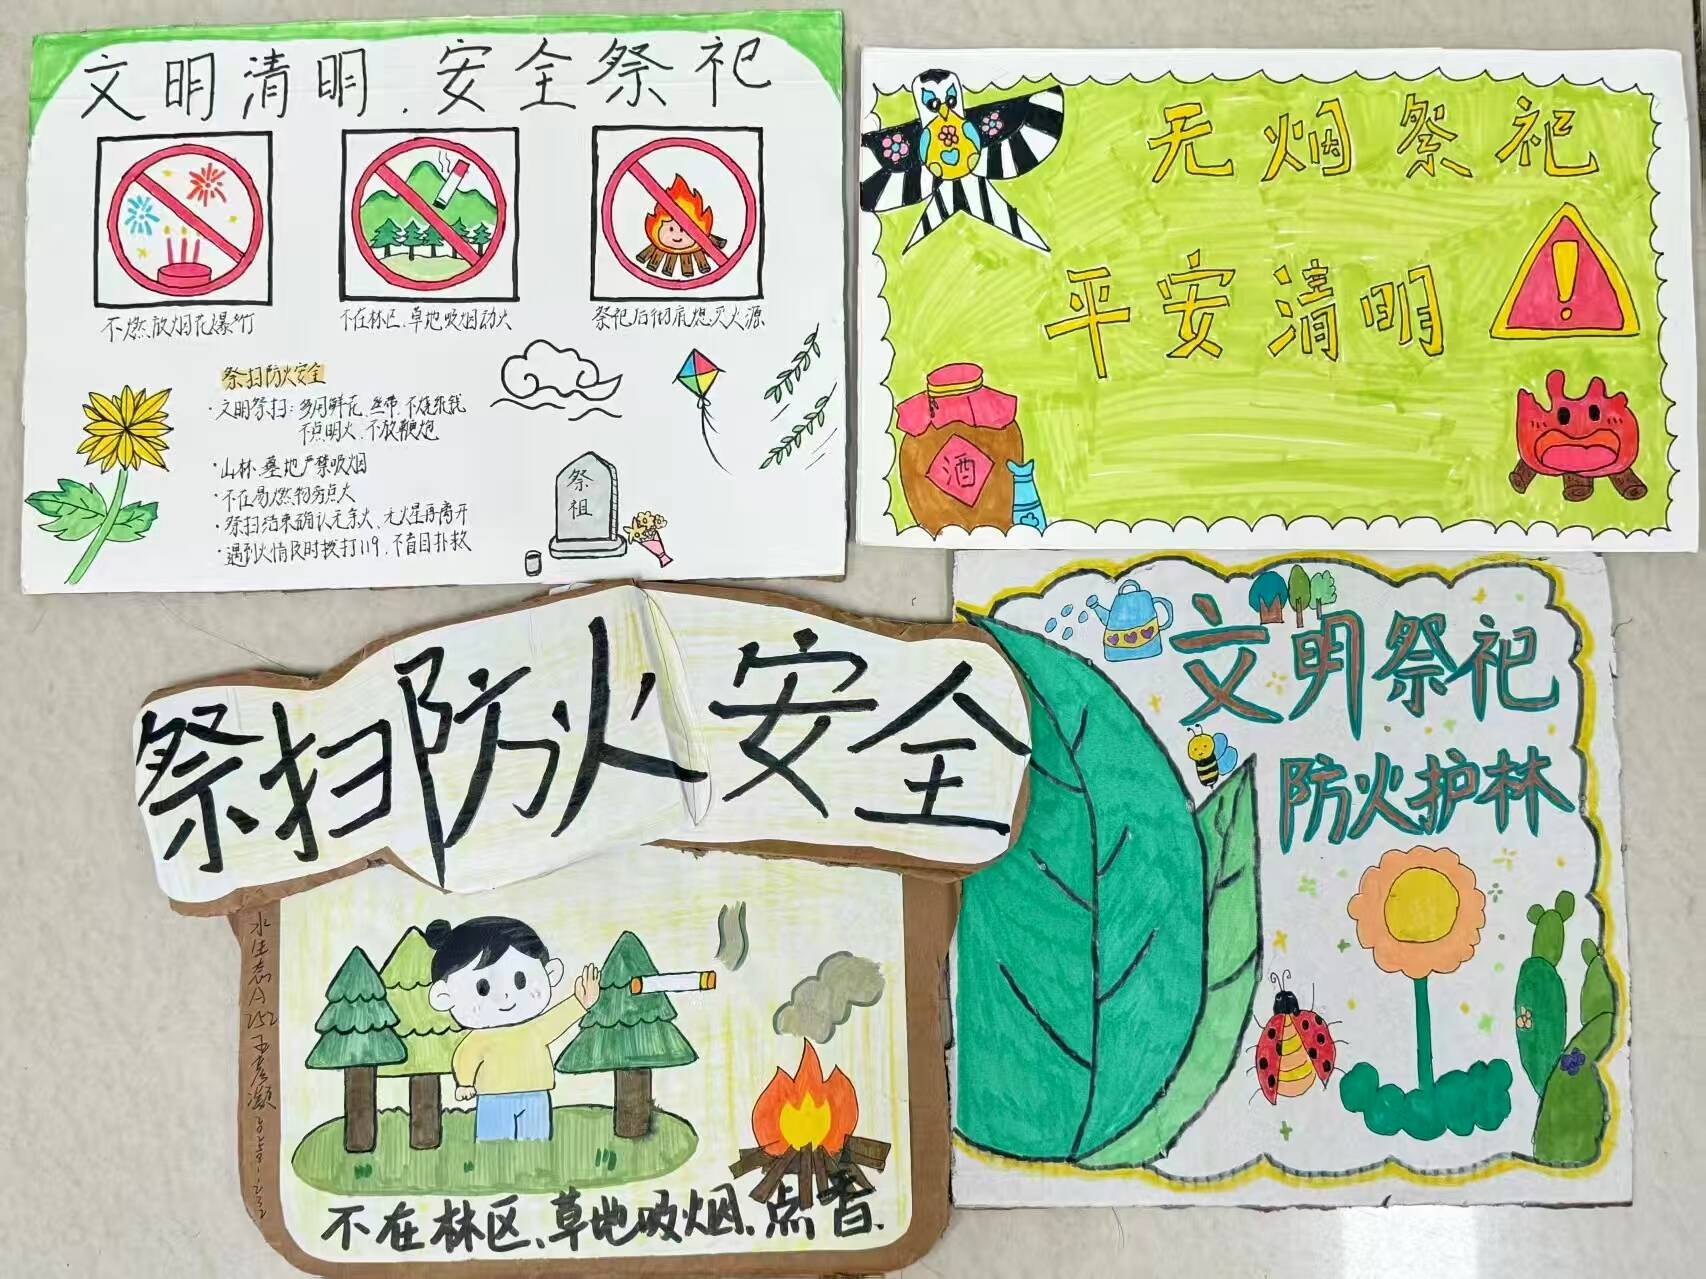 文明清明.安全祭祀
不燃放烟花爆竹
不在林区、草地吸烟动火
祭祀后彻底熄灭火源
祭扫防火安全
·文明祭扫:多用鲜花、丝带、不烧纸钱
不点明火、不放鞭炮
·山林、墓地严禁吸烟
·不在易燃物旁点火
·祭扫结束确认无余火、无火星再离开
·遇到火情及时拨打119,不盲目扑救
祭祖
无烟祭祀
平安清明
酒
祭扫防火安全
水生态A252
不在林区、草地吸烟、点香.
文明祭祀
防火护林